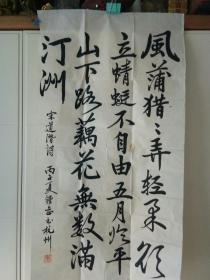 風蒲猎〻弄轻柔欲
立蜻蜓不自由五月临平
山下路藕花無数满
汀洲
宋道潜詩
丙子夏
杭州